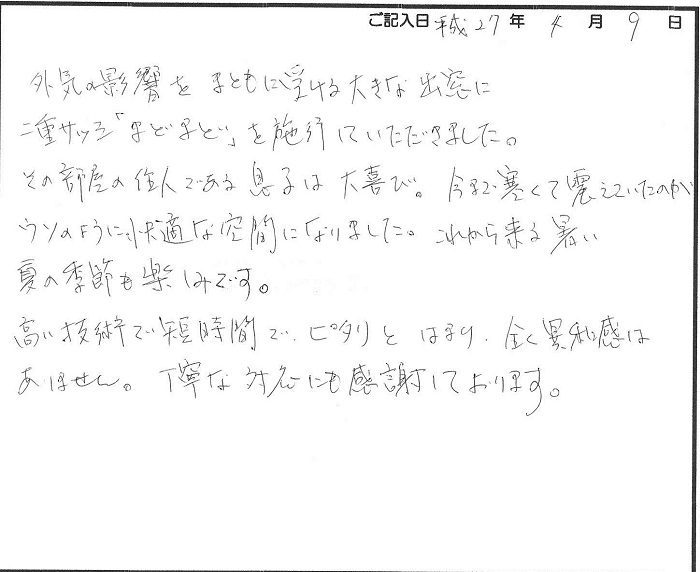 ご記入日 平成27年 4月 9日
外気の影響をまともに受ける大きな出窓に
二重サッシ「まどまど」を施行していただきました。
その部屋の住人である息子は大喜び。今まで寒くて震えていたのが
ウソのように快適な空間になりました。これから来る暑い
夏の季節も楽しみです。
高い技術で短時間で、ピタリとはまり、全く異和感は
ありません。丁寧な対応にも感謝しております。